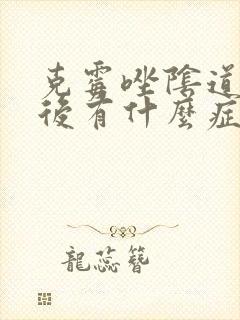 克霉唑陰道
後有什麼症
龍蕊簪